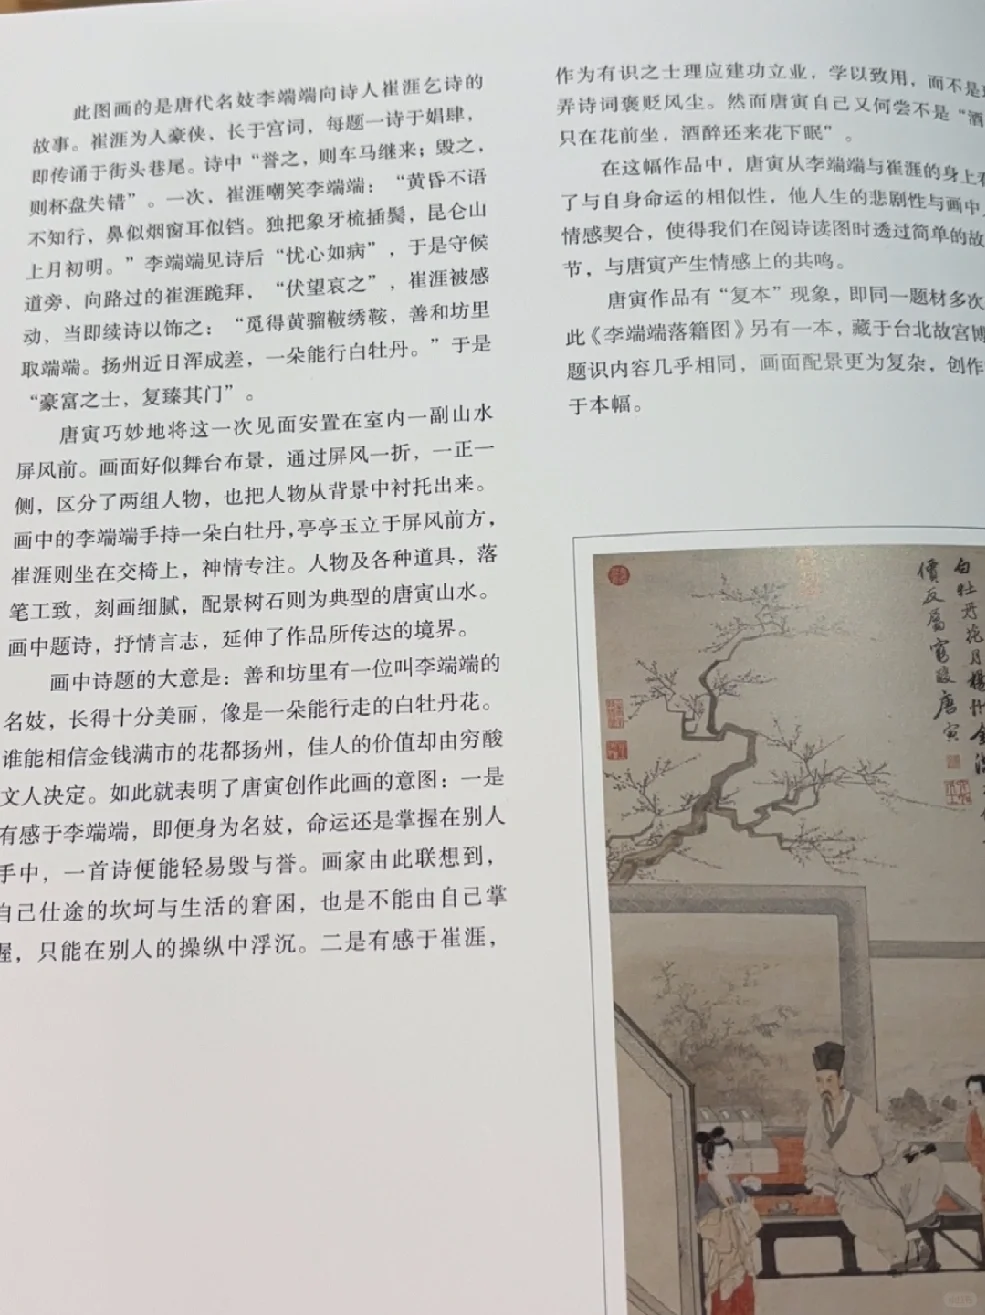 此图画的是唐代名妓李端端向诗人崔涯乞诗的
故事。崔涯为人豪侠、长于宫词，每题一诗于娼肆，
即传诵于街头巷尾。诗中“誉之，则车马继来；毁之，
则杯盘失错”。一次，崔涯嘲笑李端端：“黄昏不语
不知行，鼻似烟窗耳似铛。独把象牙梳插鬓，昆仑山
上月初明。”李端端见诗后“忧心如病”，于是守候
道旁、向路过的崔涯跪拜，“伏望哀之”，崔涯被感
动，当即续诗以饰之：“觅得黄骝鞁绣鞍，善和坊里
取端端。扬州近日浑成差，一朵能行白牡丹。”于是
“豪富之士，复臻其门”。
唐寅巧妙地将这一次见面安置在室内一副山水
屏风前。画面好似舞台布景，通过屏风一折，一正一
侧，区分了两组人物，也把人物从背景中衬托出来。
画中的李端端手持一朵白牡丹，亭亭玉立于屏风前方，
崔涯则坐在交椅上，神情专注。人物及各种道具，落
笔工致，刻画细腻，配景树石则为典型的唐寅山水。
画中题诗，抒情言志，延伸了作品所传达的境界。
画中诗题的大意是：善和坊里有一位叫李端端的
名妓，长得十分美丽，像是一朵能行走的白牡丹花。
谁能相信金钱满市的花都扬州，佳人的价值却由穷酸
文人决定。如此就表明了唐寅创作此画的意图：一是
有感于李端端，即便身为名妓，命运还是掌握在别人
手中，一首诗便能轻易毁与誉。画家由此联想到，
自己仕途的坎坷与生活的窘困，也是不能由自己掌
握，只能在别人的操纵中浮沉。二是有感于崔涯，
作为有识之士理应建功立业，学以致用，而不是
弄诗词褒贬风尘。然而唐寅自己又何尝不是“酒
只在花前坐，酒醉还来花下眠”。
在这幅作品中，唐寅从李端端与崔涯的身上
了与自身命运的相似性，他人生的悲剧性与画中
情感契合，使得我们在阅诗读图时透过简单的故
节，与唐寅产生情感上的共鸣。
唐寅作品有“复本”现象，即同一题材多次
此《李端端落籍图》另有一本，藏于台北故宫博
题识内容几乎相同，画面配景更为复杂，创作
于本幅。
白牡丹花月
價反屬窮酸唐寅